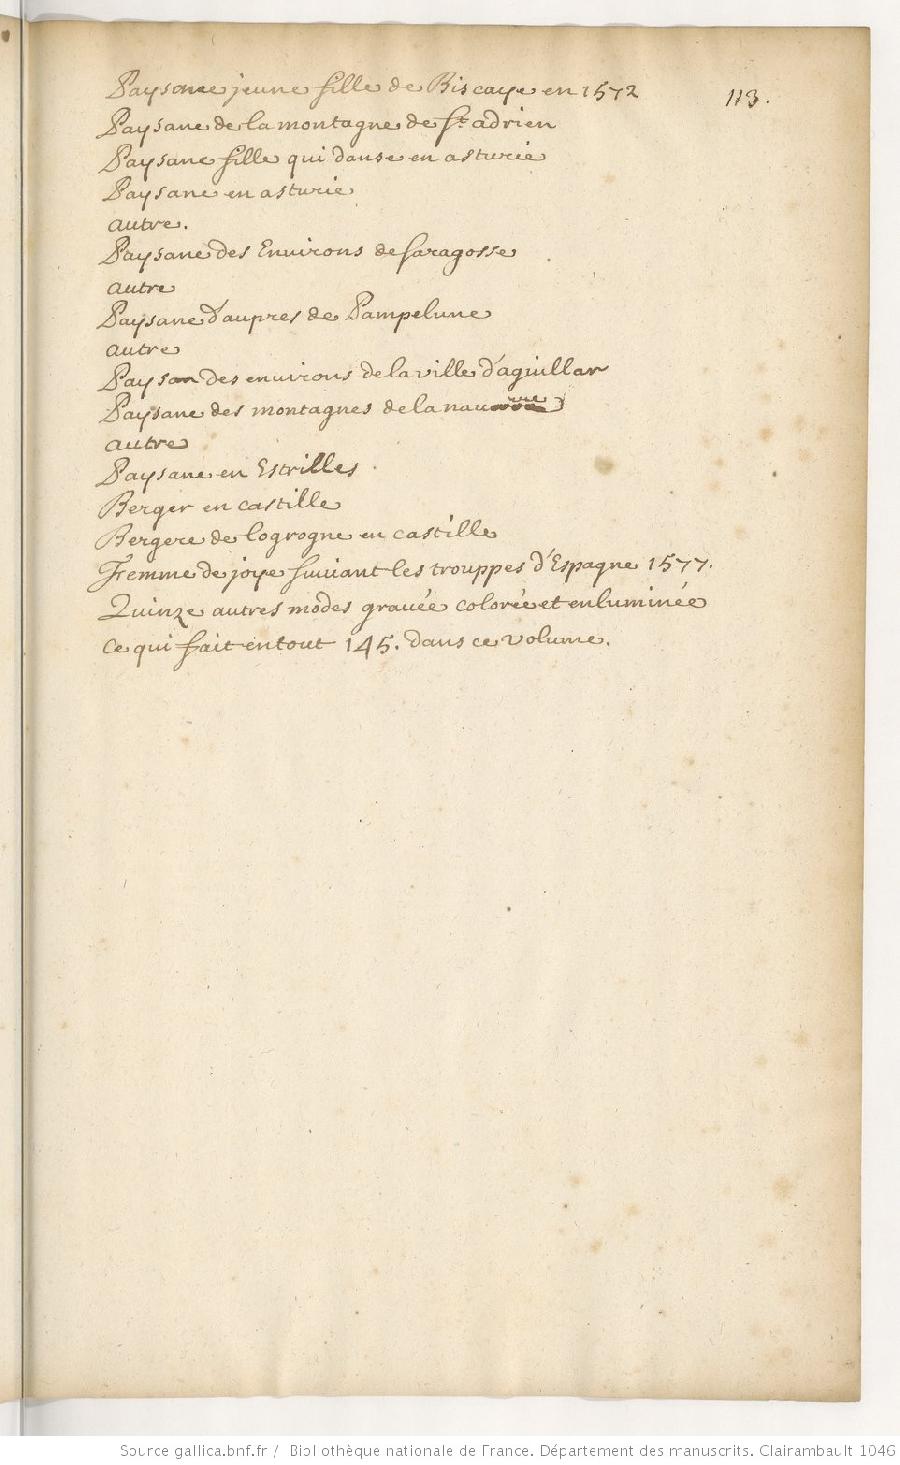 Paysane jeune fille de Biscaye en 1572
113.
Paysane de la montagne de St. adrien
Paysane fille qui danse en asturie
Paysane en asturie
autre.
Paysane des Environs de Saragosse
autre
Paysane d'aupres de Pampelune
autre
Paysan des environs de la ville d'aguillar
Paysane des montagnes de la nauarre
autre
Paysane en Estrilles
Berger en castille
Bergere de logrogne en castille
Femme de joye suiuant les trouppes d'Espagne 1577.
Quinze autres modes grauée colorée et enluminée
ce qui fait en tout 145. dans ce volume.
Source gallica.bnf.fr / Bibliothèque nationale de France. Département des manuscrits. Clairambault 1046